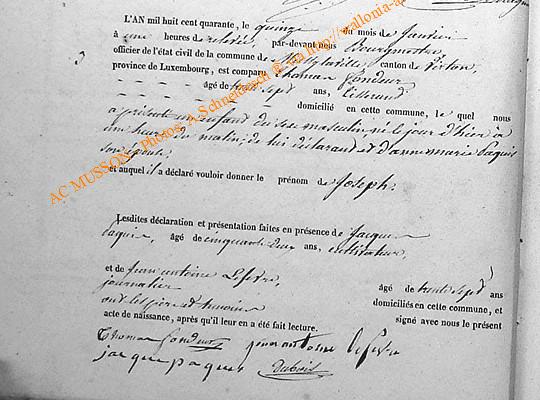 L'AN mil huit cent quarante, le quinze du mois de Janvier
à une heures de relevée, par-devant nous Bourgmestre
officier de l'état civil de la commune de canton de Virton,
province de Luxembourg, est comparu Thomas Condeur
âgé de trente sept ans, tisserand
domicilié en cette commune, le quel nous
a présenté un enfant du sexe masculin, né le jour d'hier à
une heure du matin, de lui déclarant et d'anne marie Paquis
son épouse,
et auquel il a déclaré vouloir donner le prénom de Joseph.
Lesdites déclaration et présentation faites en présence de Jacques
Paquis, âgé de cinquante deux ans, cultivateur,
et de Jean antoine Lefevre, âgé de trente sept ans
journalier domiciliés en cette commune, et
ont les père et témoins signé avec nous le présent
acte de naissance, après qu'il leur en a été fait lecture.
Thomas Condeur jean antoine lefevre
jacque paquis
AC MUSSON - Photos: A. Schneidesch @ via http://wallonia-a